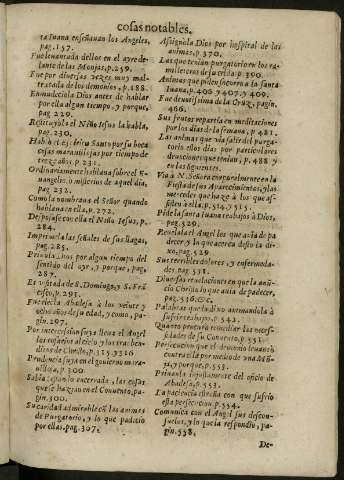 cosas notables.
ta Iuana enseñauan los Angeles,
pag. 157.
Fue leuantada del lor en el ayre de-
lante de las Monjas, p. 259.
Fue por diuersas vezes, muy mal-
tratada de los demonios, p. 188.
Enmudeciola Dios antes de hablar
por ella algun tiempo, y porque,
pag. 229.
Restituyola el Niño Iesus la habla,
pag. 230.
Habló el Espiritu Santo por su boca
cosas marauillosas por tiempo de
treze años, p. 231.
Ordinariamente hablaua sobre el E-
uangelio, o misterios de aquel dia,
pag. 232.
Como la nombraua el Señor quando
hablaua en ella, p. 272.
Desposose con ella el Niño Iesus, p.
284.
Imprimela las señales de sus llagas,
pag. 285.
Priuala Dios por algun tiempo del
sentido del oyr, y porque, pag.
287.
Es visitada de S. Domingo, y S. Frã-
cisco, p. 291.
Fue electa Abadesa à los veinte y
ocho años de su edad, y como, pa-
gin. 297.
Por intercession suya lleua el Angel
los rosarios al cielo y los trae ben-
ditos de Christo, p. 315. y 316
Prudencia suya en el gouierno mara-
uillosa, p. 300
Sabia estando encerrada, las cosas
que se hazian en el Conuento, pa-
gin. 300.
Su caridad admirable cõ las animas
de Purgatorio, y lo que padecio
por ellas, pag. 307.
Assignola Dios por hospital de las
animas, p. 370.
Las que tenian purgatorio en los ra-
milleteros de su celda, p. 390.
Animas que piden socorro a la santa
Iuana, p. 406 y 407. y 409.
Fue deuotissima de la Cruz, pagin.
466.
Sus frutos repartia en meditaciones
por los dias de la semana, p. 481.
Las animas que via salir del purga-
torio ellos dias por particulares
deuociones que tenian, p. 488 y
en las siguientes.
Via à N. Señora corporalmente en la
Fiesta de sus Aparecimientos, y las
mercedes que haze à los que as-
sisten à ella, p. 514. y 515.
Pide la santa Iuana trabajos à Dios,
pag. 529.
Reuelala el Angel los que auia de pa-
decer y lo que acerca desto la di-
xo, pag. 529
Sus terribles dolores, y enfermeda-
des pag. 531.
Diuersas reuelaciones en que la anũ-
cio Christo lo que auia de padecer,
pag. 536. &c.
Palabras que la dixo animandola à
sufrir trabajos, p. 542.
Quanto procura remediar las neces-
sidades de su Conuento, p. 551.
Persecucion que el demonio leuantò
contra ella por medio de vna Mõ-
ja, y porque, p. 553.
Priuanla injustamente del oficio de
Abadesa, p. 553.
La paciencia estraña con que sufrio
esta persecucion, p. 554.
Comunica con el Angel sus descon-
suelos, y lo que la respondio, pa-
gin. 558.
De-